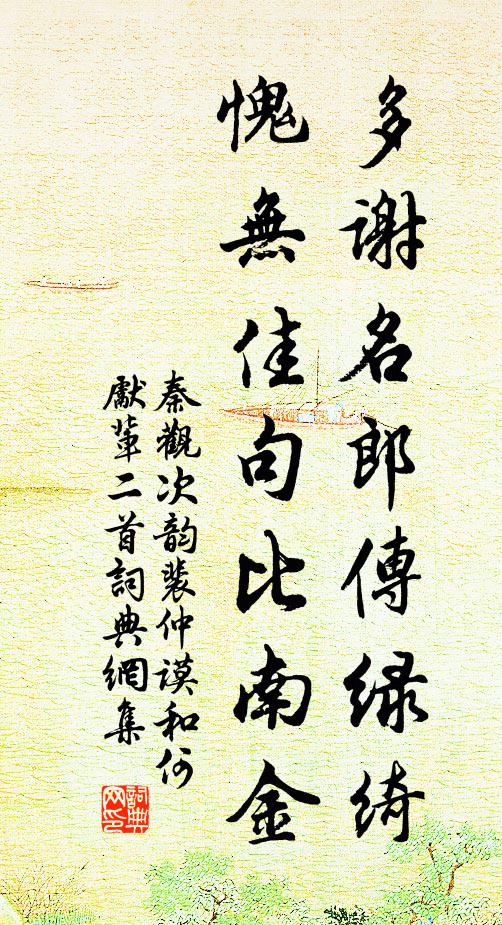 多謝名郎傳绿绮
愧無佳句比南金
秦觀次韵裴仲謨和何
獻輩二首詞典網集
詞典
网印